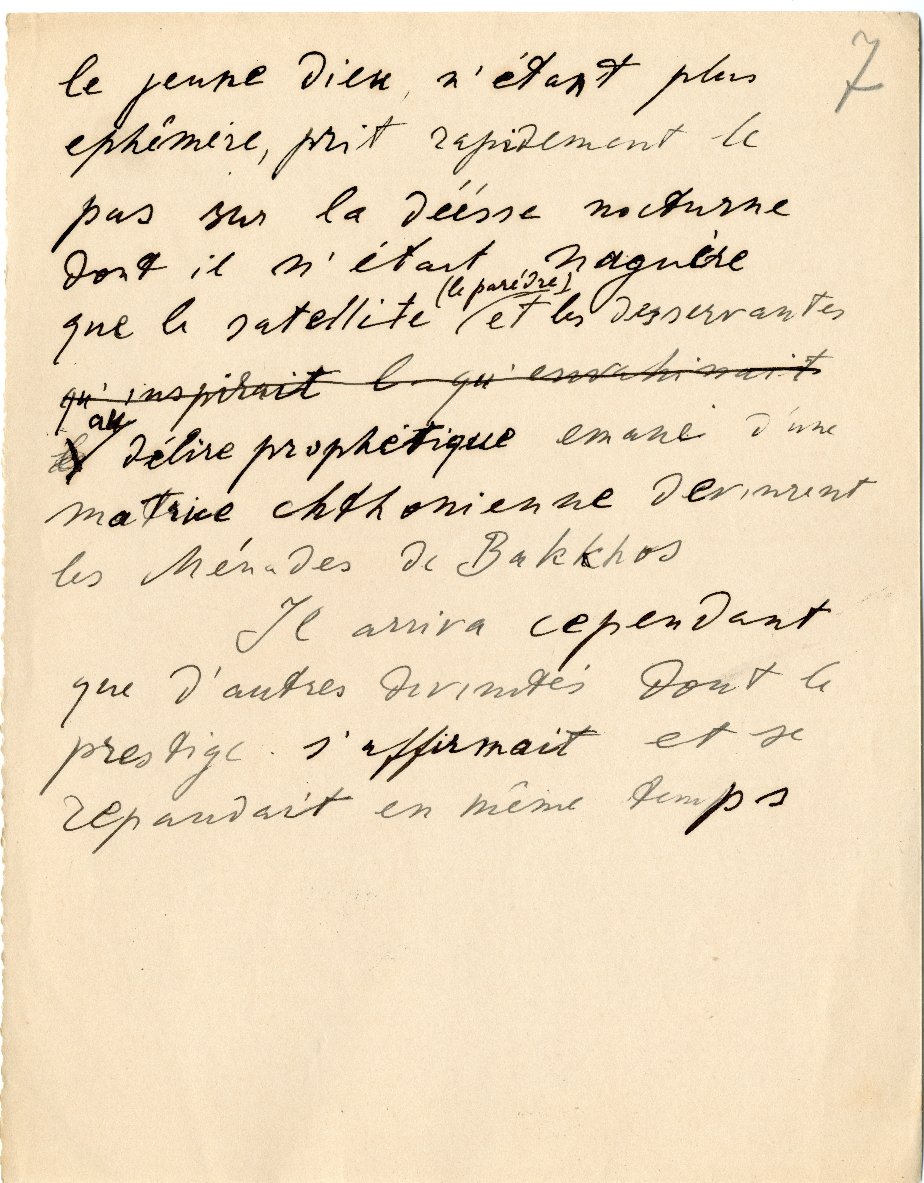 7
le jeune Dieu, n'étant plus
ephêmère, prit rapidement le
pas sur la déésse nocturne
dont il n'était naguère
(le parèdre)
que le satellite et les desservantes
qu'inspirait le qu'envahissait
au
délire prophétique emané d'une
matrice chthonienne devinrent
les Ménades de Bakkhos
Il arriva cependant
que d'autres divinités dont le
prestige s'affirmait et se
repandait en même temps